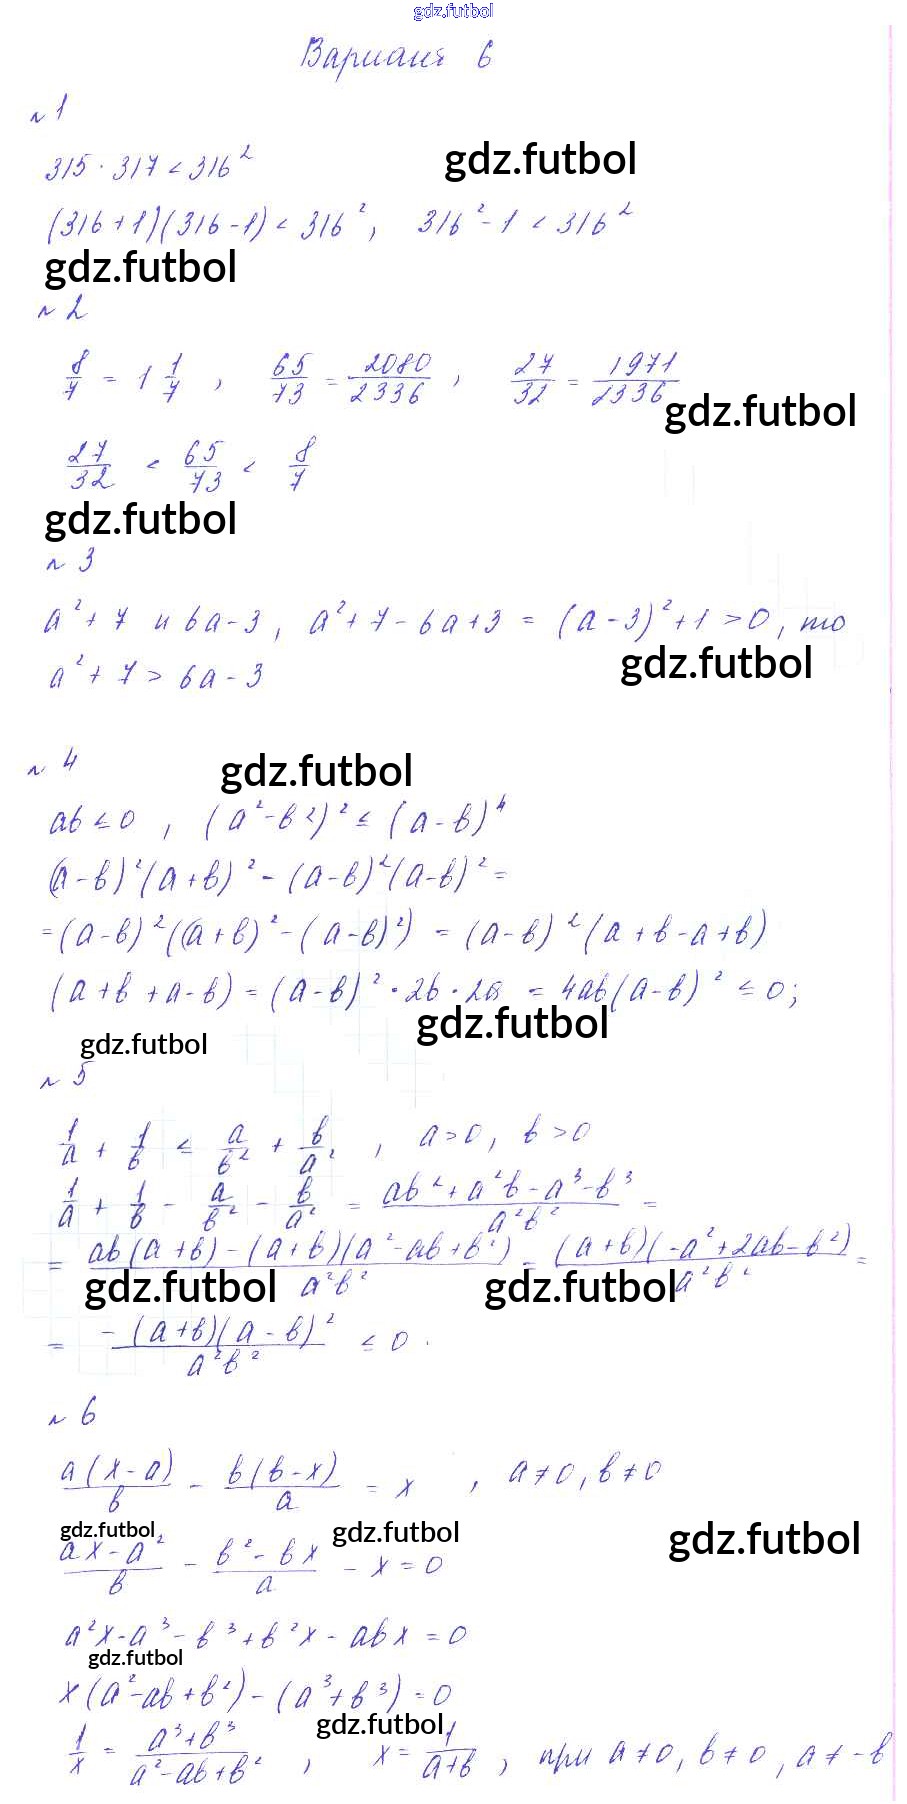 gdz.futbol
Вариант 6
№ 1
315 · 317 < 316²
gdz.futbol
(316+1)(316-1) < 316², 316² - 1 < 316²
gdz.futbol
№ 2
8/7 = 1 1/7, 65/73 = 2080/2336, 27/32 = 1971/2336
gdz.futbol
27/32 < 65/73 < 8/7
gdz.futbol
№ 3
a² + 7 и 6a - 3, a² + 7 - 6a + 3 = (a - 3)² + 1 > 0, то
gdz.futbol
a² + 7 > 6a - 3
№ 4
gdz.futbol
ab ≤ 0, (a² - b²)² ≤ (a - b)⁴
(a - b)²(a + b)² - (a - b)²(a - b)² =
= (a - b)²((a + b)² - (a - b)²) = (a - b)²(a + b - a + b)
(a + b + a - b) = (a - b)² · 2b · 2a = 4ab(a - b)² ≤ 0;
gdz.futbol
gdz.futbol
№ 5
1/a + 1/b ≤ a/b² + b/a², a > 0, b > 0
1/a + 1/b - a/b² - b/a² = (ab² + a²b - a³ - b³)/(a²b²) =
= (ab(a + b) - (a + b)(a² - ab + b²))/(a²b²) = ((a + b)(-a² + 2ab - b²))/(a²b²) =
gdz.futbol gdz.futbol
= (-(a + b)(a - b)²)/(a²b²) ≤ 0.
№ 6
a(x - a)/b - b(b - x)/a = x, a ≠ 0, b ≠ 0
gdz.futbol gdz.futbol gdz.futbol
(ax - a²)/b - (b² - bx)/a - x = 0
a²x - a³ - b³ + b²x - abx = 0
gdz.futbol
x(a² - ab + b²) - (a³ + b³) = 0
gdz.futbol
1/x = (a³ + b³)/(a² - ab + b²), x = 1/(a + b), при a ≠ 0, b ≠ 0, a ≠ -b